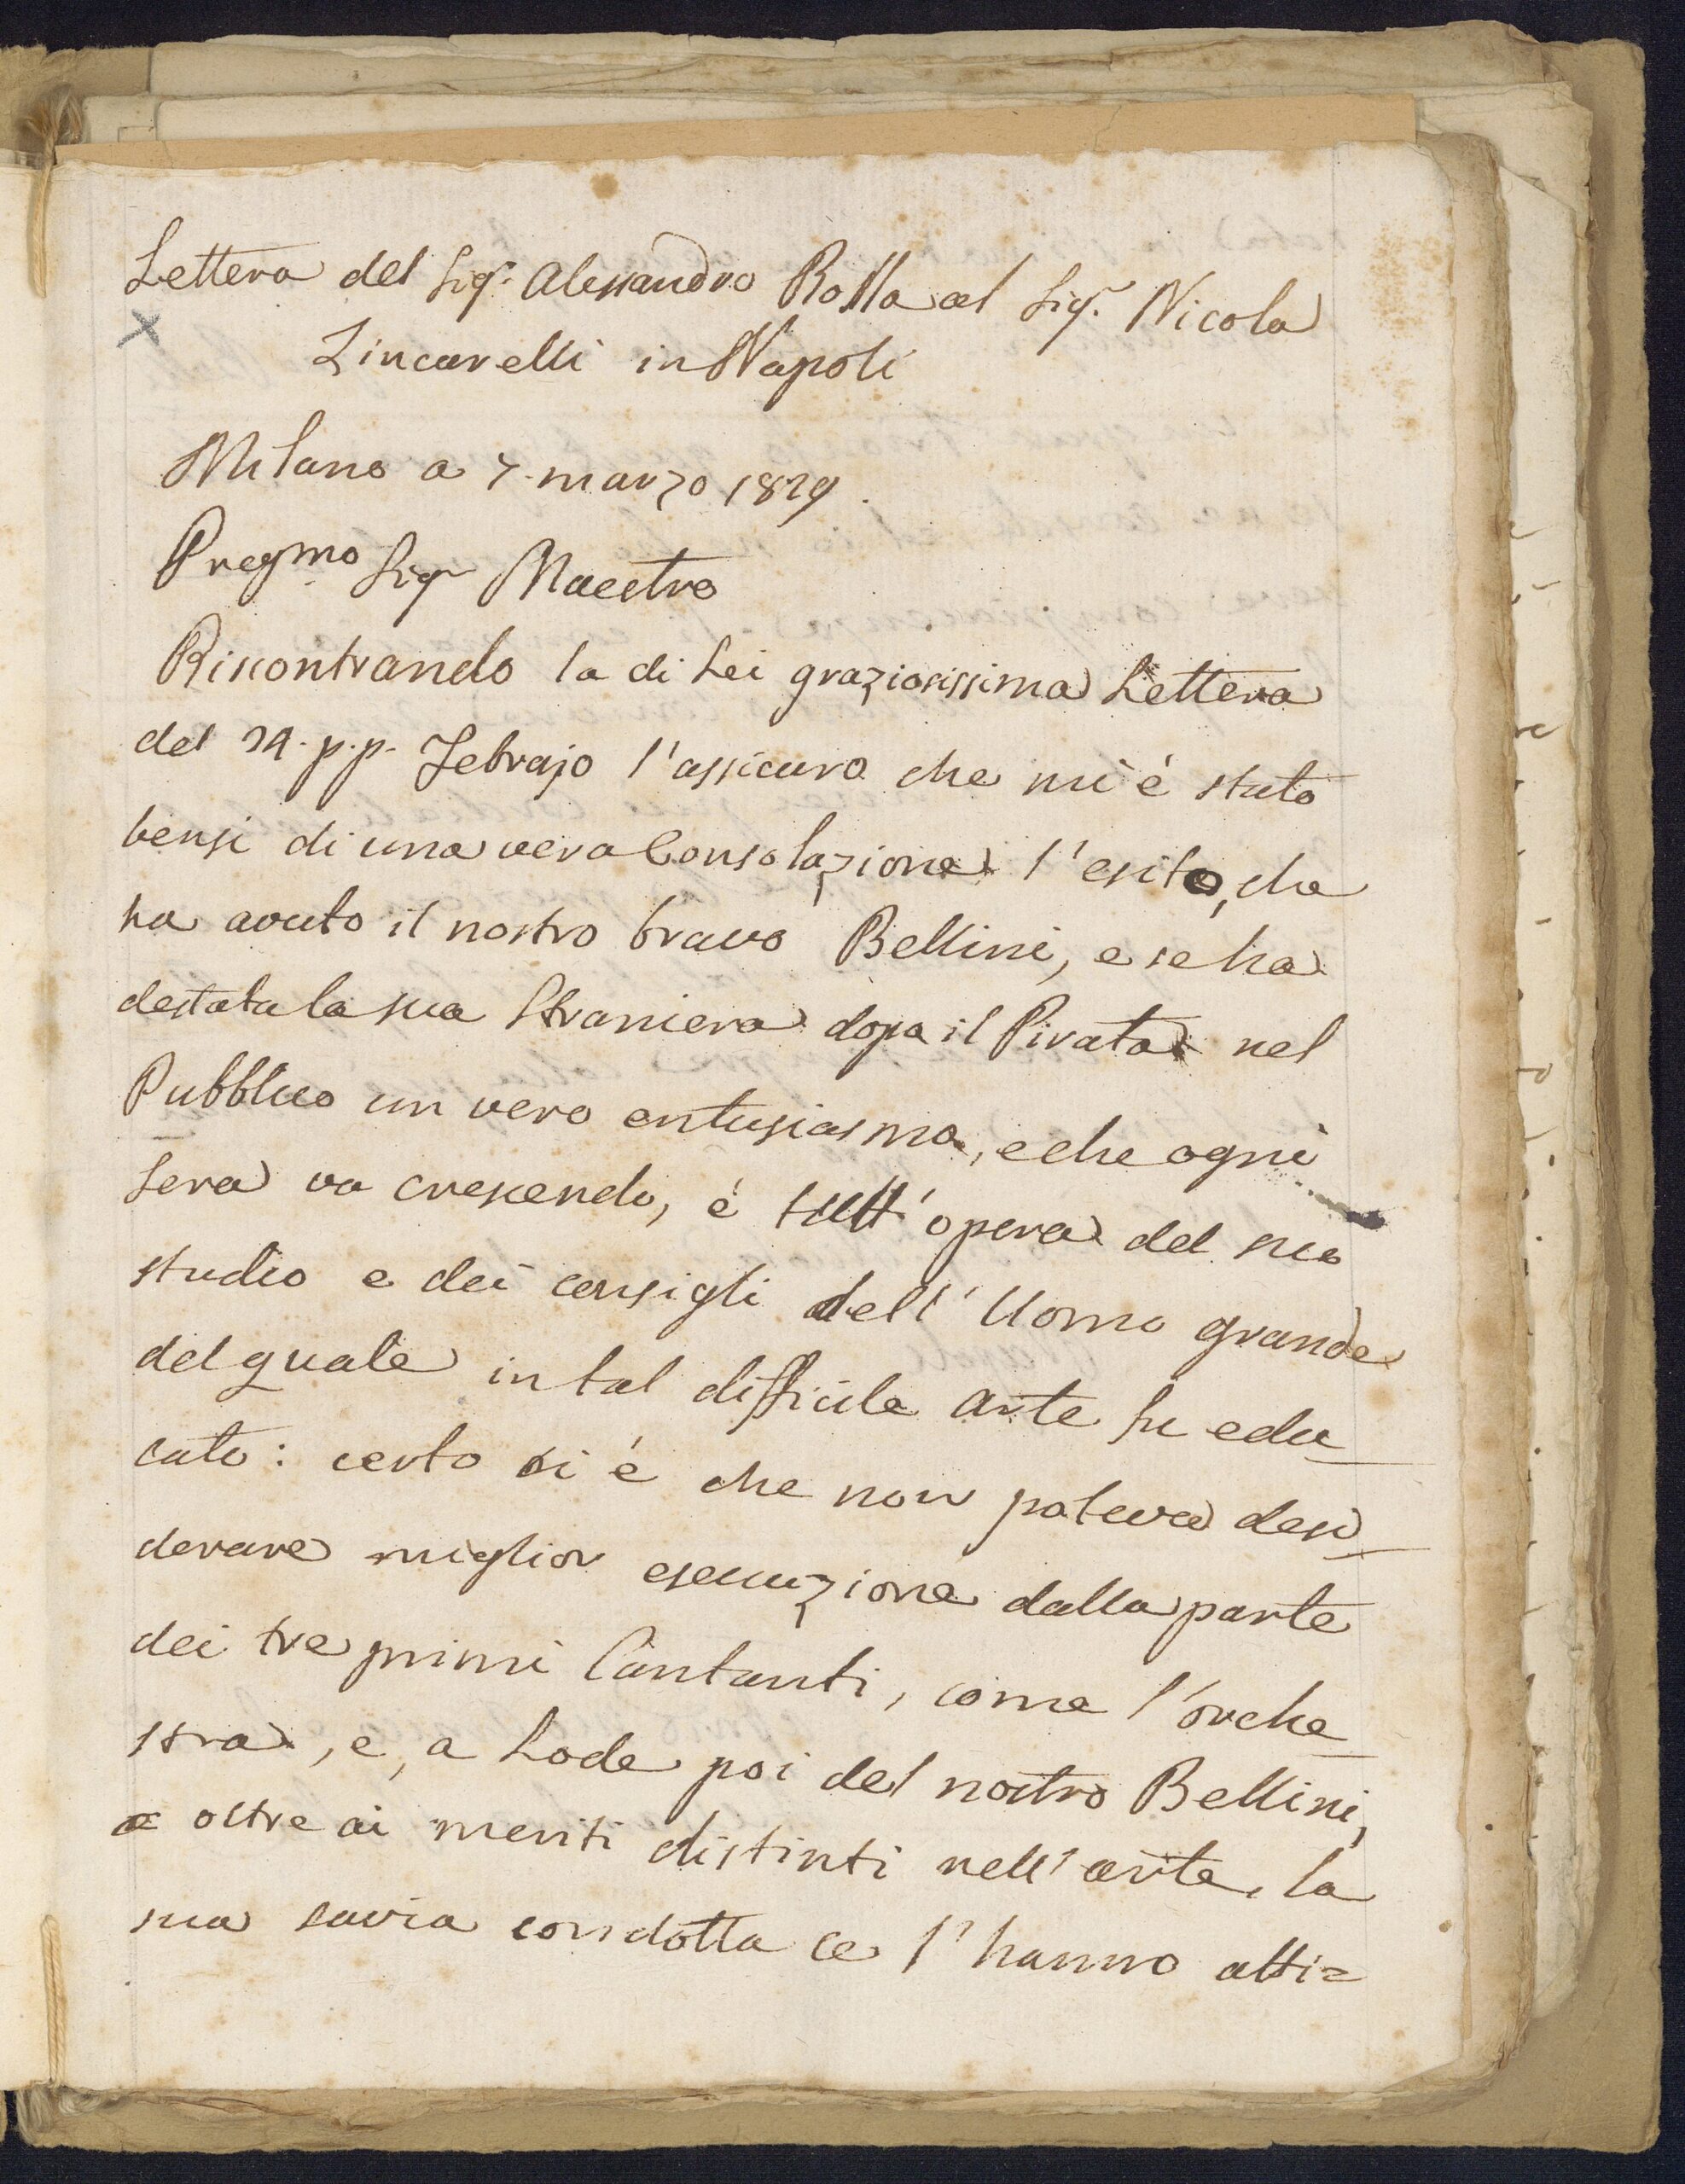 Lettera del Sigr. Alessandro Rolla al Sigr. Nicola
Zincarelli in Napoli
Milano a 7. marzo 1829.
Pregmo Sigr Maestro
Riscontrando la di Lei graziosissima Lettera
del 24. p.p. Febrajo l'assicuro che mi è stato
bensi di una vera Consolazione l'esito, che
ha avuto il nostro bravo Bellini, e se ha
destata la sua Straniera dopo il Pirata nel
Pubblico un vero entusiasmo, e che ogni
sera va crescendo, è tutt'opera del suo
studio e dei consigli dell'Uomo grande
del quale in tal difficile arte fu edu_
cato: certo si è che non poteva desi_
derare miglior esecuzione dalla parte
dei tre primi Cantanti, come l'orche_
stra, e, a Lode poi del nostro Bellini,
e oltre ai meriti distinti nell'arte, la
sua savia condotta ce l'hanno atti=